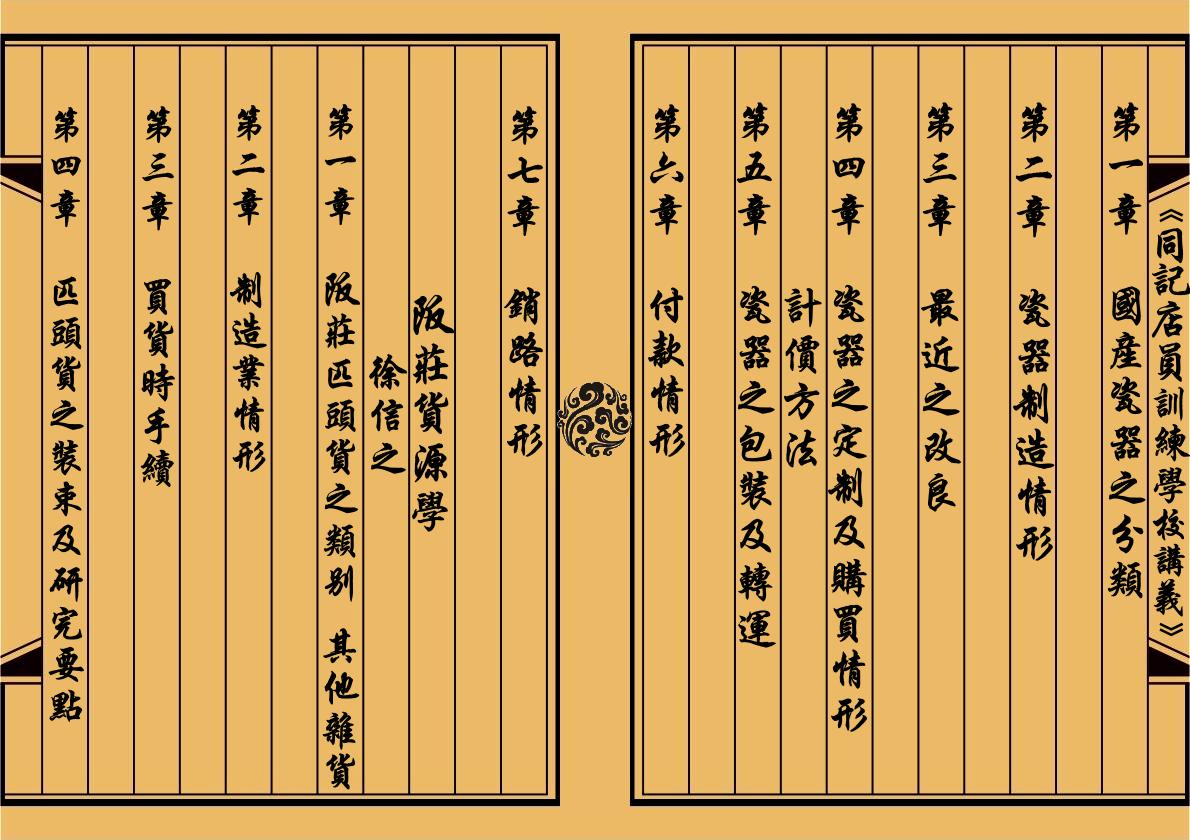 《同記店員訓練學校講義》
第一章 國産瓷器之分類
第二章 瓷器制造情形
第三章 最近之改良
第四章 瓷器之定制及購買情形
計價方法
第五章 瓷器之包裝及轉運
第六章 付款情形
第七章 銷路情形
阪莊貨源學
徐信之
第一章 阪莊匹頭貨之類别 其他雜貨
第二章 制造業情形
第三章 買貨時手續
第四章 匹頭貨之裝束及研究要點